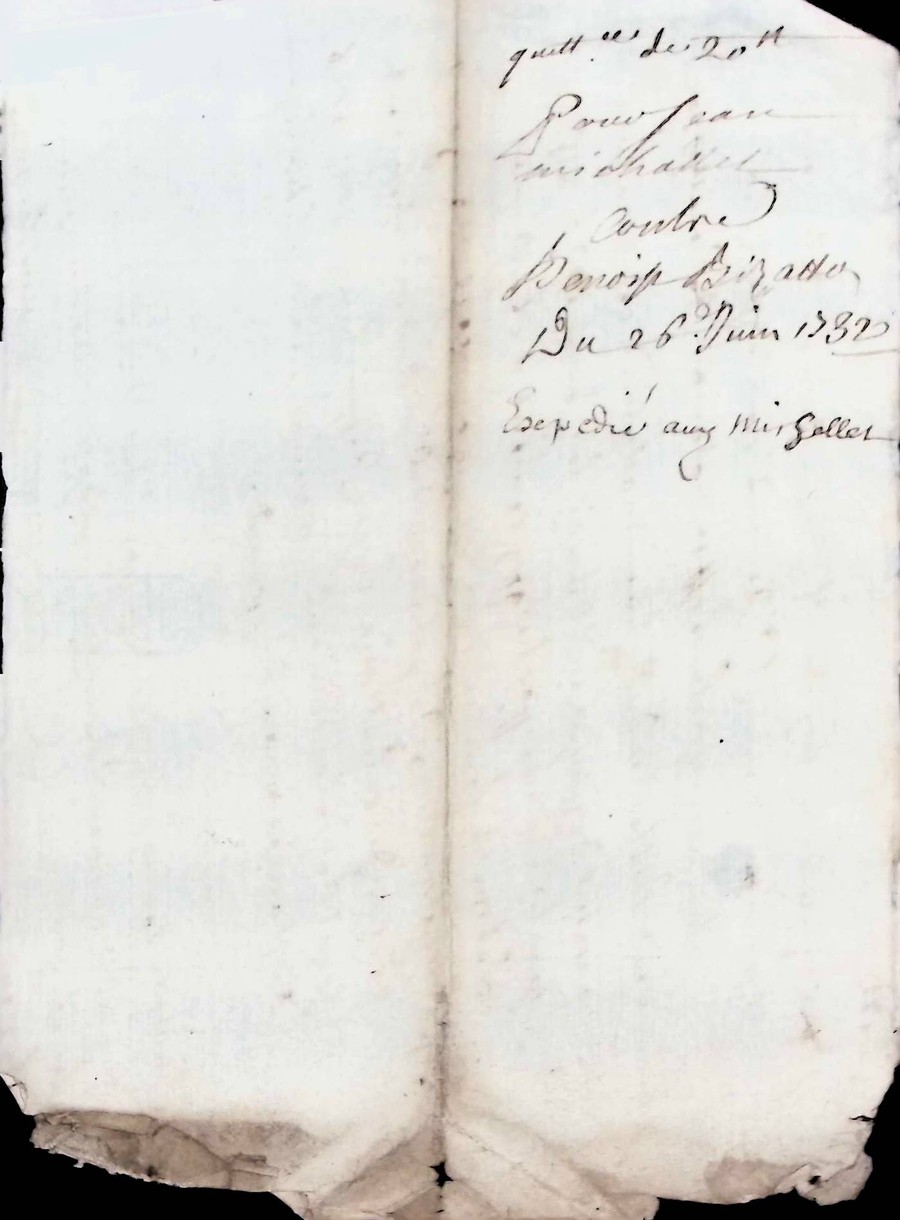 quitt.ces de 20tt
Pour Jean
michallet
contre
Benoist Bizatto
Du 26e Juin 1732
Expedié aux michellet